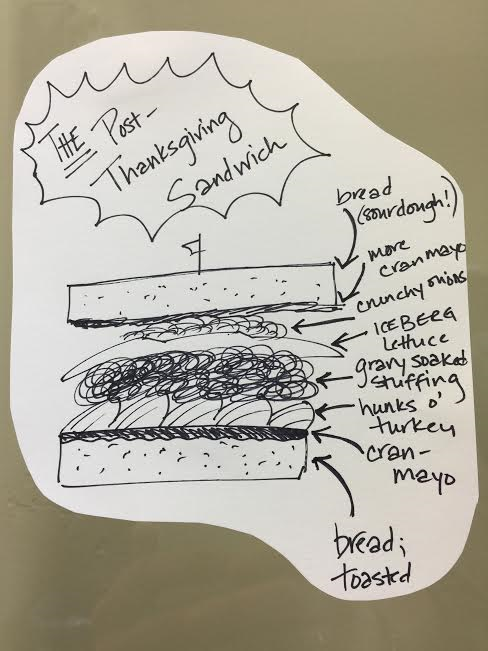 THE Post-
Thanksgiving
Sandwich
bread
(sourdough!)
more
cran mayo
crunchy onions
ICEBERG
lettuce
gravy soaked
stuffing
hunks o'
turkey
cran-
mayo
bread;
toasted